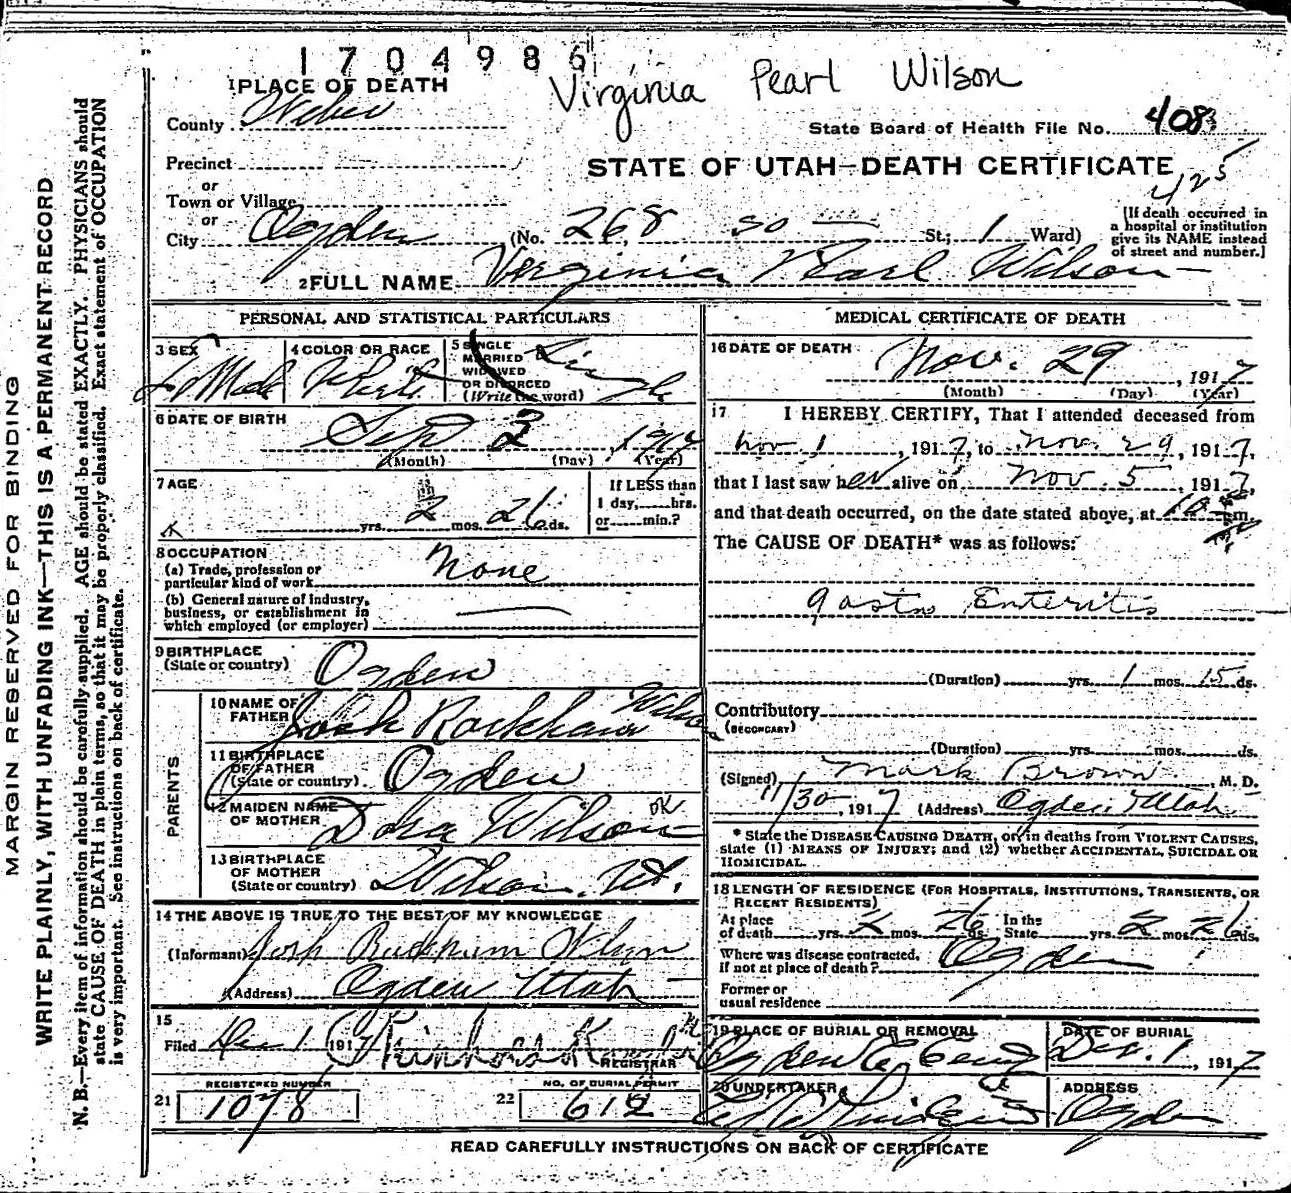 1704986
Virginia Pearl Wilson
1 PLACE OF DEATH
County Weber
State Board of Health File No. 408
Precinct
STATE OF UTAH—DEATH CERTIFICATE
or
425
Town or Village
or
City Ogden (No. 268 so — St.; 1 Ward)
[If death occurred in
a hospital or institution
give its NAME instead
of street and number.]
2 FULL NAME Virginia Pearl Wilson
PERSONAL AND STATISTICAL PARTICULARS
3 SEX
4 COLOR OR RACE White
5 SINGLE
MARRIED
WIDOWED
OR DIVORCED
(Write the word) Single
6 DATE OF BIRTH Sep 3, 1917
(Month) (Day) (Year)
7 AGE
yrs. 2 mos. 26 ds.
If LESS than
1 day, hrs.
or min.?
8 OCCUPATION
(a) Trade, profession or
particular kind of work None
(b) General nature of industry,
business, or establishment in
which employed (or employer) —
9 BIRTHPLACE
(State or country) Ogden
PARENTS
10 NAME OF
FATHER Josh Wilson
11 BIRTHPLACE
OF FATHER
(State or country) Ogden
12 MAIDEN NAME
OF MOTHER Dora Wilson OK
13 BIRTHPLACE
OF MOTHER
(State or country) Wilson, Ut.
14 THE ABOVE IS TRUE TO THE BEST OF MY KNOWLEDGE
(Informant) Josh Wilson
(Address) Ogden Utah
15
Filed Dec 1 1917
REGISTRAR
21 REGISTERED NUMBER 1078
22 NO. OF BURIAL PERMIT 612
MEDICAL CERTIFICATE OF DEATH
16 DATE OF DEATH Nov. 29, 1917
(Month) (Day) (Year)
17 I HEREBY CERTIFY, That I attended deceased from
Nov 1, 1917, to Nov. 29, 1917,
that I last saw her alive on Nov. 5, 1917,
and that death occurred, on the date stated above, at 10 m.
The CAUSE OF DEATH* was as follows:
Gastro Enteritis
(Duration) yrs. 1 mos. 15 ds.
Contributory
(SECONDARY)
(Duration) yrs. mos. ds.
(Signed) Mark Brown, M. D.
11/30, 1917 (Address) Ogden Utah
* State the DISEASE CAUSING DEATH, or, in deaths from VIOLENT CAUSES,
state (1) MEANS OF INJURY; and (2) whether ACCIDENTAL, SUICIDAL OR
HOMICIDAL.
18 LENGTH OF RESIDENCE (FOR HOSPITALS, INSTITUTIONS, TRANSIENTS, OR
RECENT RESIDENTS)
At place
of death yrs. 2 mos. 26 ds.
In the
State yrs. 2 mos. 26 ds.
Where was disease contracted,
if not at place of death? Ogden
Former or
usual residence
19 PLACE OF BURIAL OR REMOVAL
Ogden
DATE OF BURIAL
Dec. 1, 1917
20 UNDERTAKER
ADDRESS
Ogden
READ CAREFULLY INSTRUCTIONS ON BACK OF CERTIFICATE
MARGIN RESERVED FOR BINDING
WRITE PLAINLY, WITH UNFADING INK—THIS IS A PERMANENT RECORD
N. B.—Every item of information should be carefully supplied. AGE should be stated EXACTLY. PHYSICIANS should
state CAUSE OF DEATH in plain terms, so that it may be properly classified. Exact statement of OCCUPATION
is very important. See instructions on back of certificate.